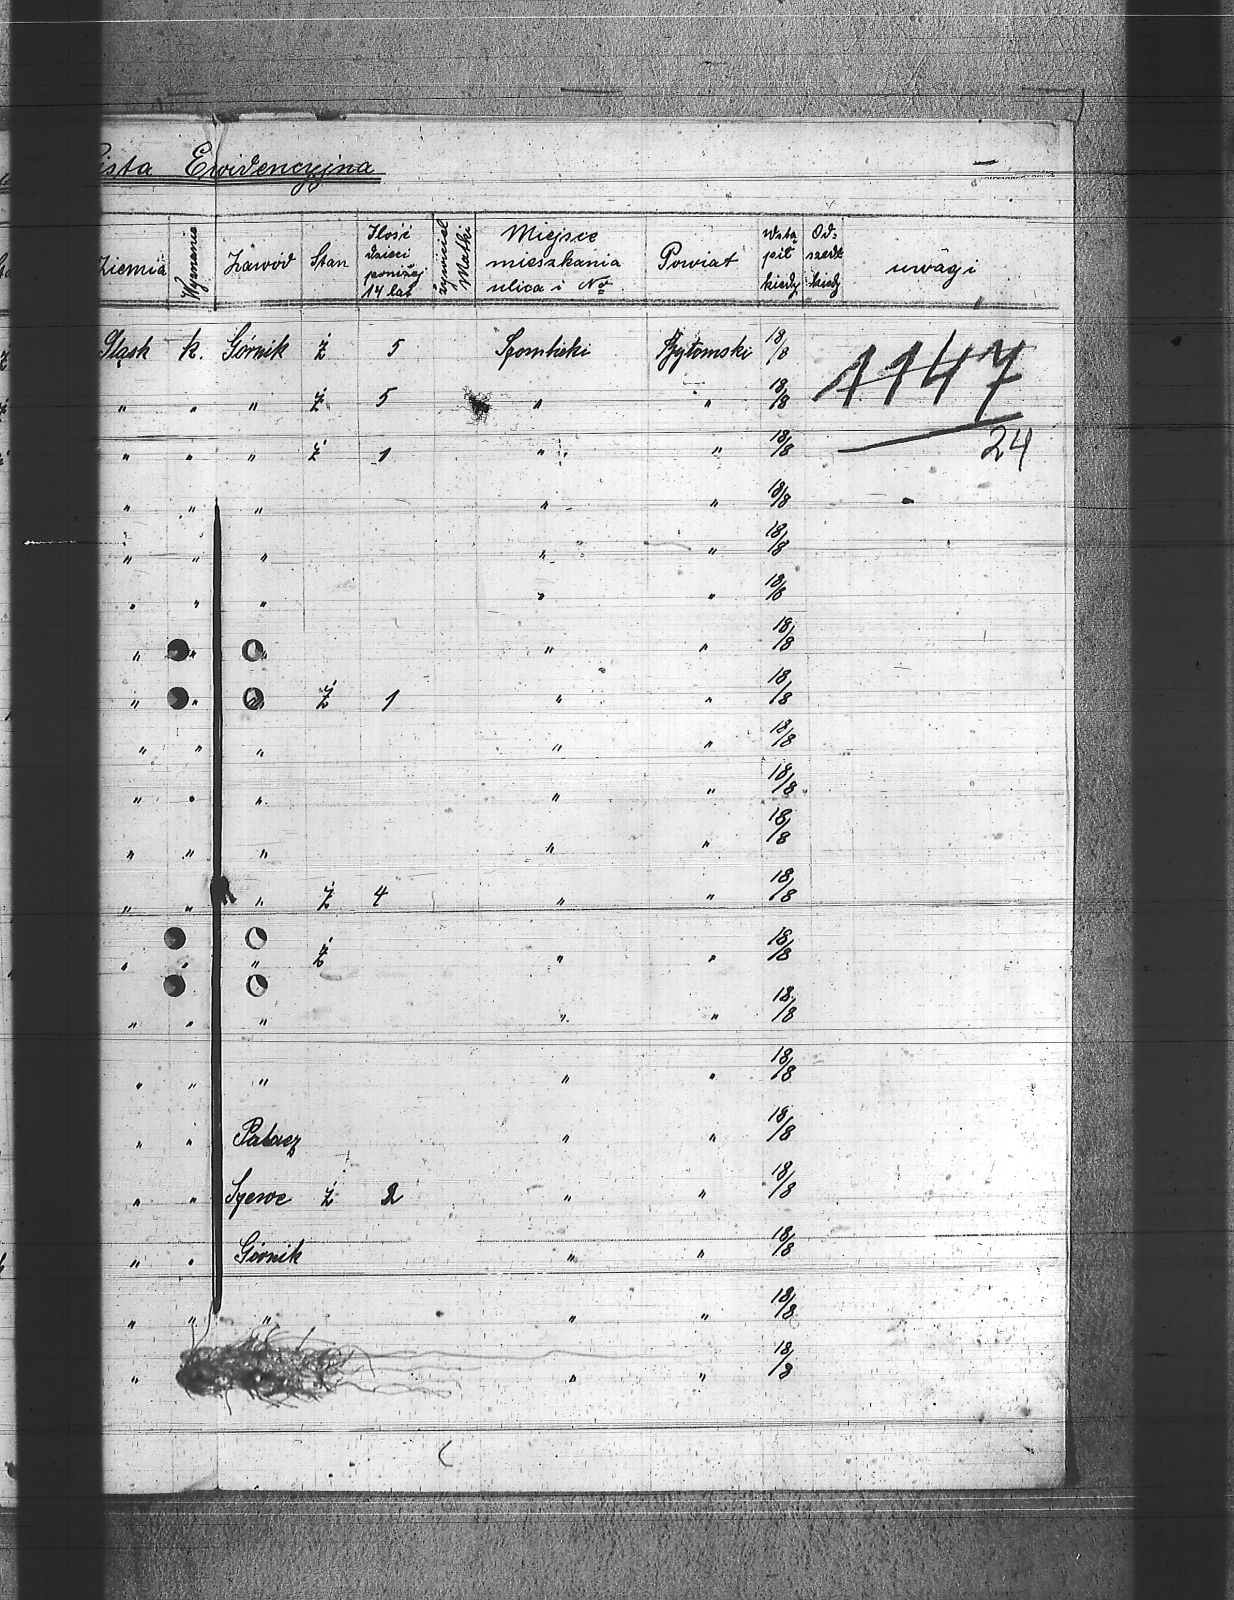 Lista Ewidencyjna
Ziemia Wyznanie Zawód Stan Ilość dzieci poniżej 14 lat żywiciel Matki Miejsce mieszkania ulica i No Powiat Wstąpił kiedy Odszedł kiedy uwagi
Śląsk k. Górnik Ż 5 Szombierki Bytomski 18/8 1147
" " " Ż 5 " " 18/8
" " " Ż 1 " " 18/8 24
" " " " " 18/8
" " " " " 18/8
" " " " " 18/8
" " " " " 18/8
" " " Ż 1 " " 18/8
" " " " " 18/8
" " " " " 18/8
" " " " " 18/8
" " " Ż 4 " " 18/8
" " " Ż " " 18/8
" " " " " 18/8
" " " " " 18/8
" " Palacz " " 18/8
" " Szewc Ż 2 " " 18/8
" " Górnik " " 18/8
" " " " " 18/8
" " " 18/8